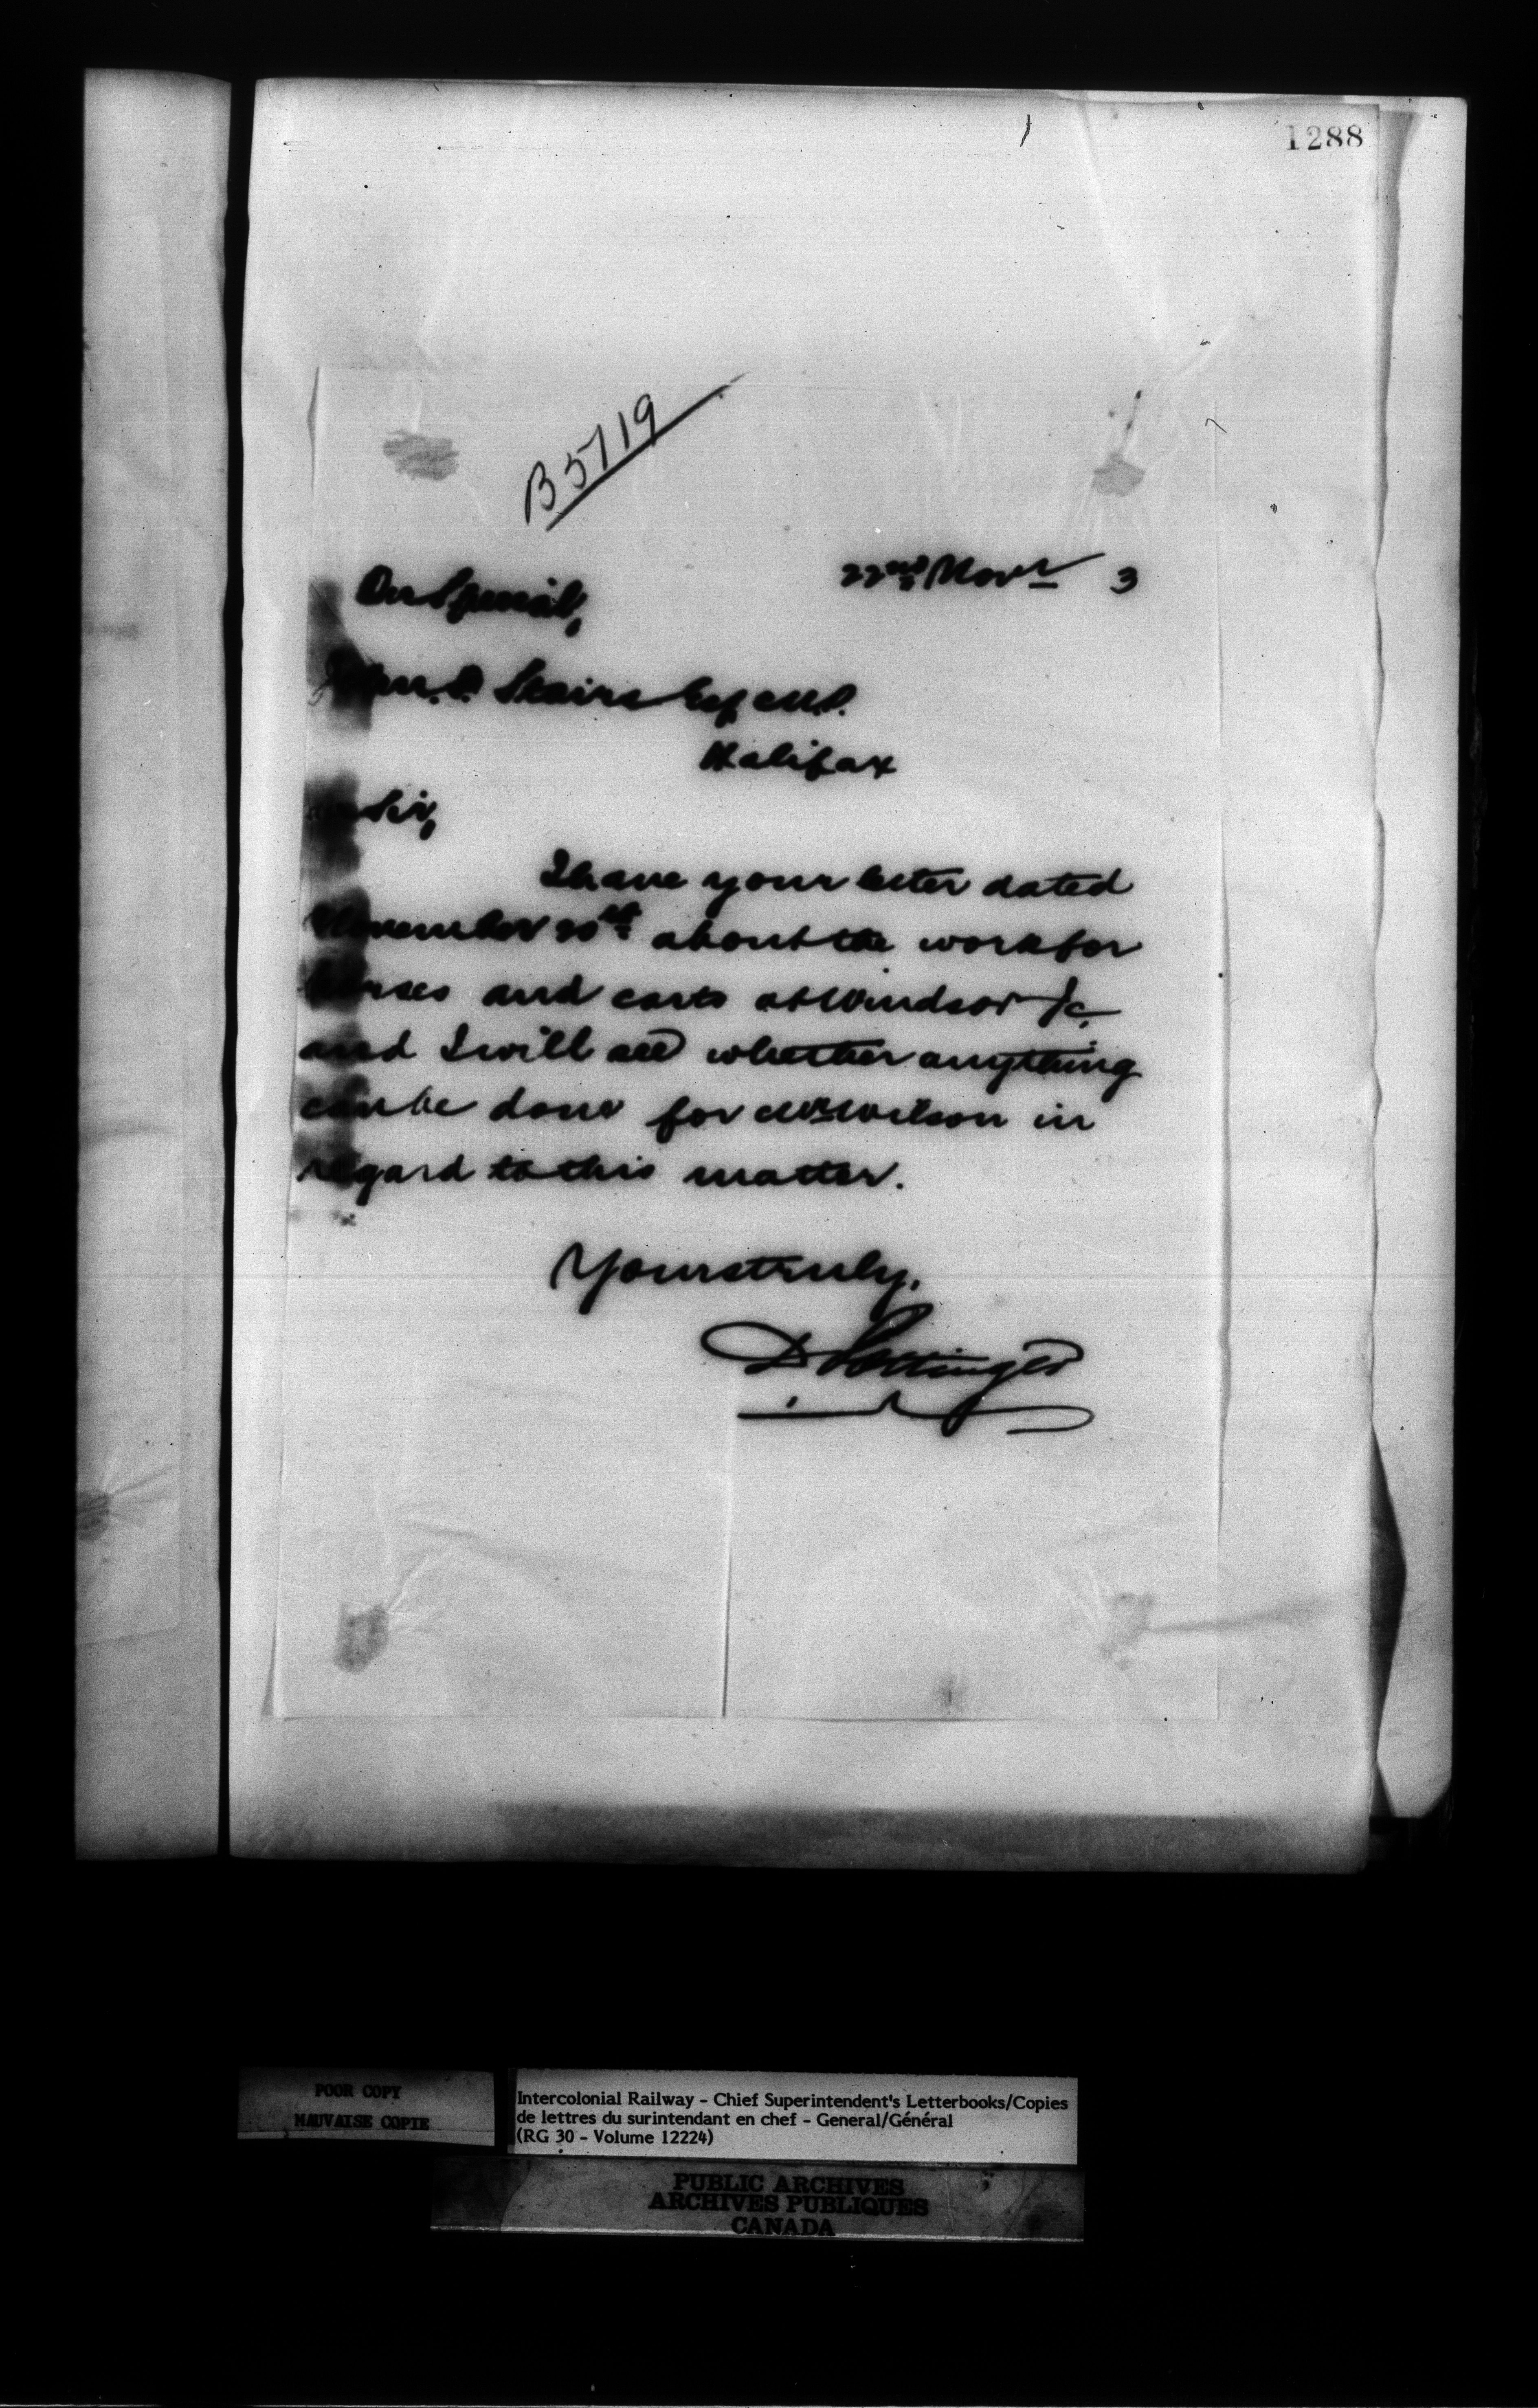 1288
B5719
22nd Novr 3
On Special,
John F. Stairs Esq M.P.
Halifax
Sir,
I have your letter dated
November 20th about the work for
horses and carts at Windsor Jc.
and I will see whether anything
can be done for Mr Wilson in
regard to this matter.
Yours truly,
D Pottinger
POOR COPY
MAUVAISE COPIE
Intercolonial Railway - Chief Superintendent's Letterbooks/Copies
de lettres du surintendant en chef - General/Général
(RG 30 - Volume 12224)
PUBLIC ARCHIVES
ARCHIVES PUBLIQUES
CANADA